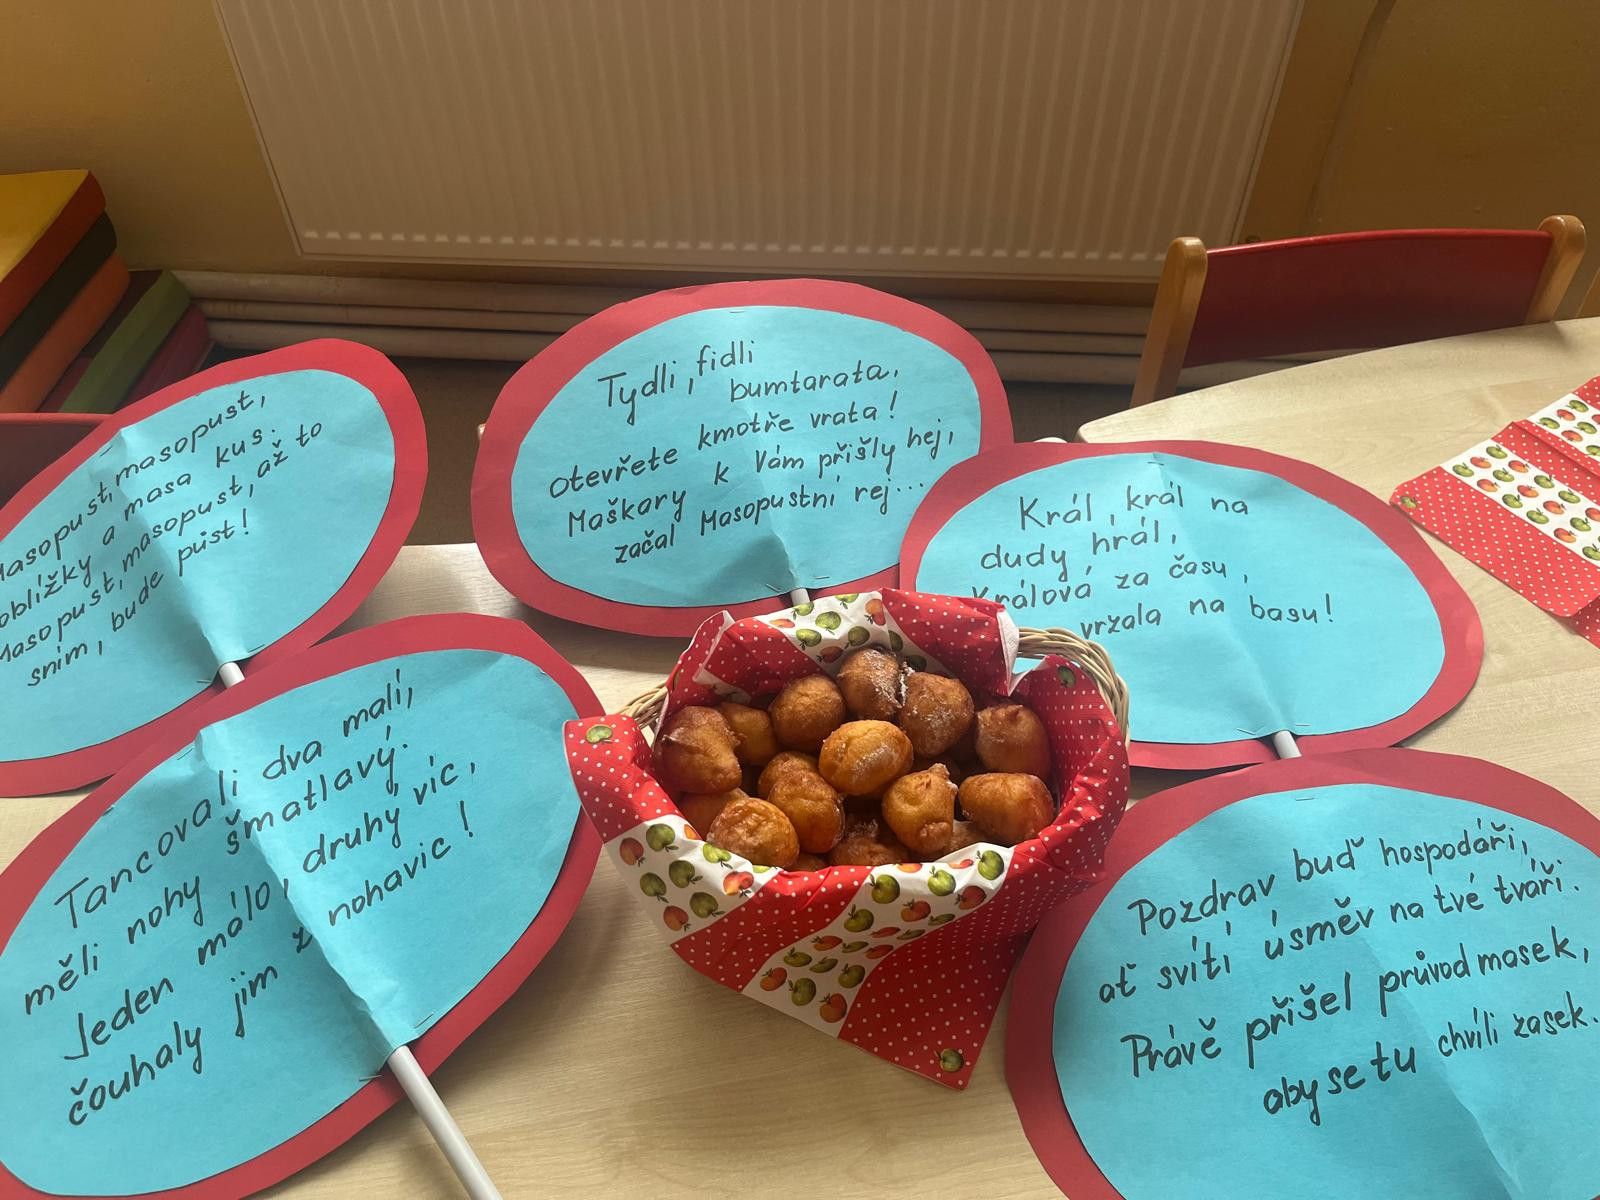 Masopust, masopust,
koblížky a masa kus.
Masopust, masopust, až to
sním, bude půst!
Tydli, fidli
bumtarata,
otevřete kmotře vrata!
Maškary k Vám přišly hej,
začal Masopustní rej...
Král, král na
dudy hrál,
Králová za času,
vrzala na basu!
Tancovali dva malí,
měli nohy šmatlavý.
Jeden málo, druhý víc,
čouhaly jim z nohavic!
Pozdrav buď hospodáři,
ať svítí úsměv na tvé tváři.
Právě přišel průvod masek,
aby se tu chvíli zasek.